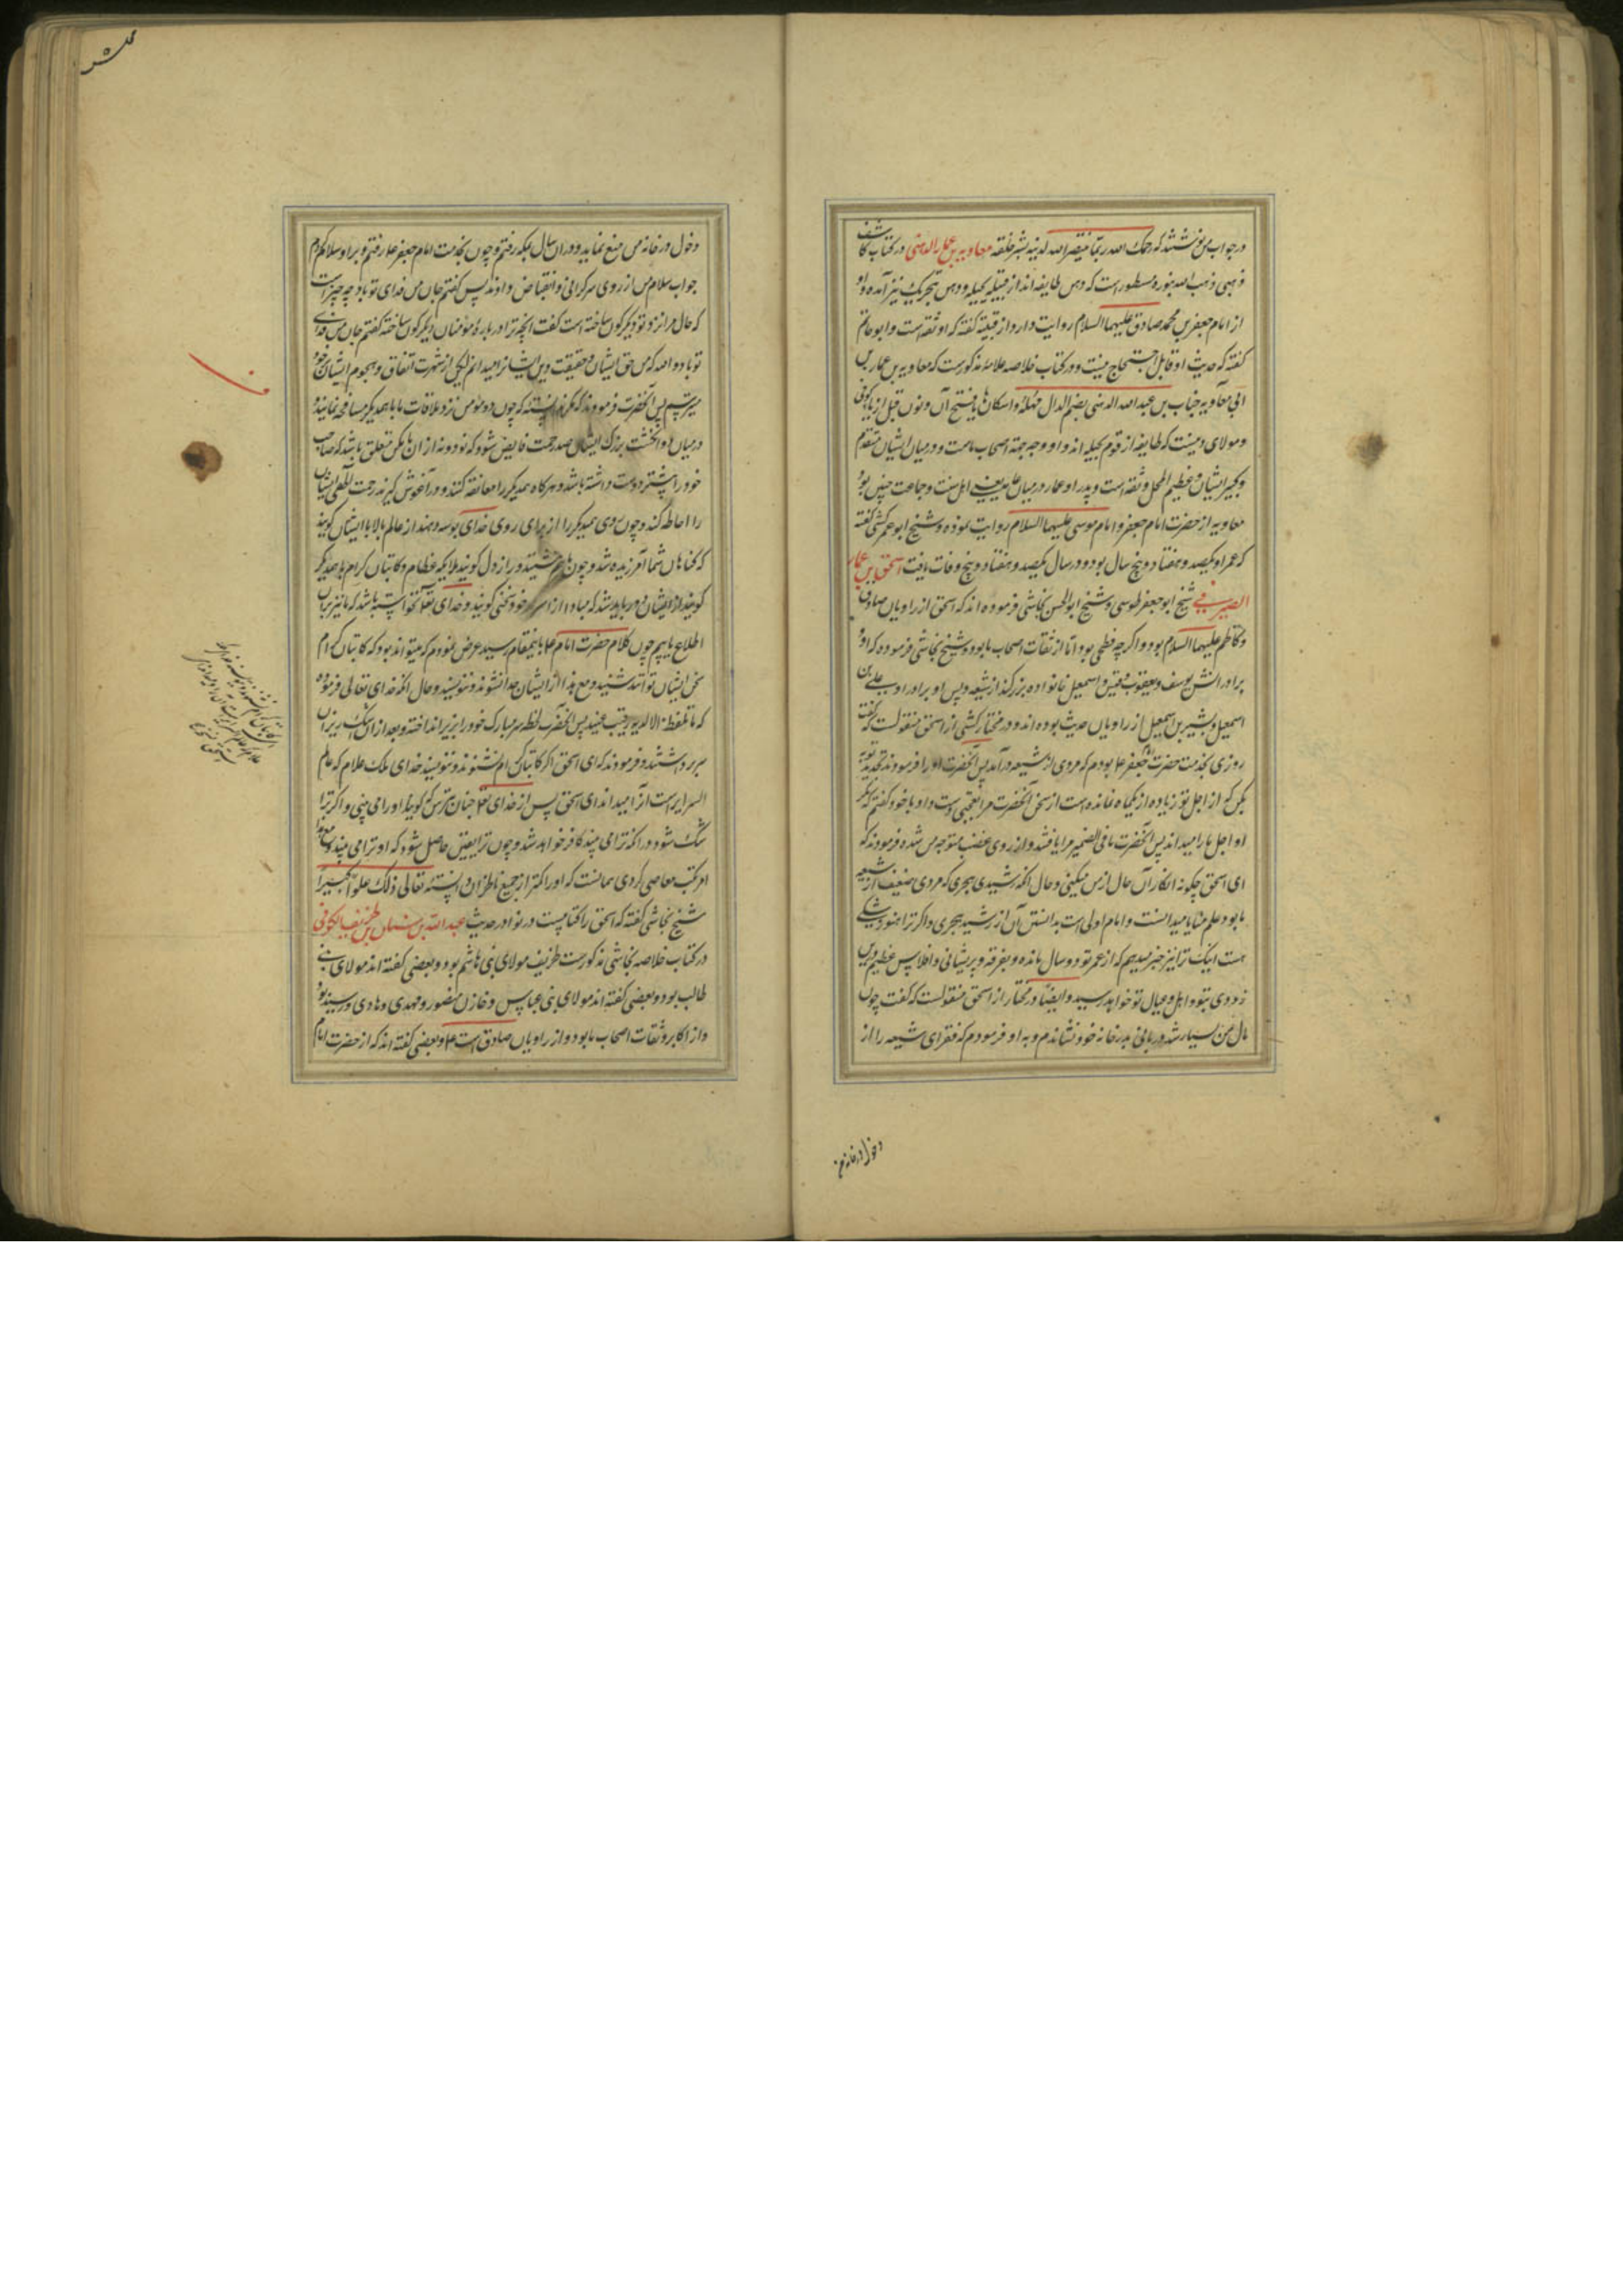 در جواب من نوشتند که رحمک الله ربما ینتصر الله لدینه بشر خلقه معاویه بن عمار الدهنی در کتاب کاشف
ذهبی ذهب الله بنوره مسطور است که دهن طایفه‌اند از قبیله بجیله و دهن بتحریک نیز آمده و او
از امام جعفر بن محمد صادق علیهما السلام روایت دارد از قبیبة گفته که او ثقه است و ابو حاتم
گفته که حدیث او قابل احتجاج نیست و در کتاب خلاصه علامه مذکور است که معاویه بن عمار بن
ابی معاویه خباب بن عبد الله الدهنی بضم الدال مهمله و اسکان ها یا فتح آن و نون قبل از یا کوفی
و مولای دهنست که طایفه از قوم بجیله‌اند و او وجه جهة اصحاب ماست و در میان ایشان متقدم
و کبیر الشان و عظیم المحل و ثقه است و پدر او عمار در میان اهل سنت و جماعت چنین بود
معاویه از حضرت امام جعفر و امام موسی علیهما السلام روایت نموده و شیخ ابو عمر کشی گفته
که عمر او یکصد و هفتاد و پنج سال بود و در سال یکصد و هفتاد و پنج وفات یافت اسحق بن عمار
الصیرفی شیخ ابو جعفر طوسی و شیخ ابو الحسن نجاشی فرموده‌اند که اسحق از راویان صادق
و کاظم علیهما السلام بود و اگر چه فطحی بود اما از ثقات اصحاب ما بود و شیخ نجاشی فرموده که او و
برادرانش یوسف و یعقوب و قیس و اسمعیل خانواده بزرگند از شیعه و پسر او برادر او علی بن
اسمعیل و بشیر بن اسمعیل از راویان حدیث بوده‌اند و در مختار کشی از اسحق منقولست که گفت
روزی بخدمت حضرت امام جعفر ع بودم که مردی از شیعه درآمد پس آنحضرت او را فرمودند تجدید توبه
بکن که از اجل تو زیاده از یکماه نمانده است از سخن آنحضرت مرا تعجبی دست داد با خود گفتم که مگر
او اجل ما را میداند پس آنحضرت ما فی الضمیر مرا یافتند و از روی غضب متوجه من شده فرمودند که
ای اسحق چگونه انکار آن حال از من میکنی و حال آنکه رشیدی هجری که مردی ضعیف از شیعه
ما بود علم منایا میدانست و امام اولی است بدانستن آن از رشید هجری و اگر ترا هنوز شکی
هست اینک ترا نیز خبر میدهم که از عمر تو دو سال مانده و تفرقه و پریشانی و افلاس عظیم درین
زودی بتو و اهل و عیال تو خواهد رسید و ایضا در مختار از اسحق منقولست که گفت چون
مال من بسیار شد دربانی بدر خانه خود نشاندم و به او فرمودم که فقرای شیعه را از
دخول در خانه من
دخول در خانه من منع نماید و در ان سال بمکه رفتم و چون بخدمت امام جعفر ع رفتم و بر او سلام کردم
جواب سلام من از روی سرگرانی و انقباض دادند پس گفتم جان من فدای تو باد چه چیز است
که حال مرا نزد تو دیگرگون ساخته است گفت آنچه ترا در باره مؤمنان دیگرگون ساخته گفتم جان من فدای
تو باد و الله که من حق ایشان و حقیقت دین ایشانرا میدانم لیکن از شهرت اتفاق و هجوم ایشان بر خود
میترسم پس آنحضرت فرمودند که مگر ندانسته که چون دو مؤمن نزد ملاقات با همدیگر مصافحه نمایند
در میان دو انگشت بزرگ ایشان صد رحمت فایض شود که نود و نه از ان بکسی متعلق باشد که صاحب
خود را بیشتر دوست داشته باشد و هر گاه همدیگر را معانقه کنند و در آغوش گیرند رحمت الهی ایشان
را احاطه کند و چون روی همدیگر را از برای روی خدای بوسه دهند از عالم بالا با ایشان گویند
که گناهان شما آمرزیده شد و چون با هم نشینند و راز دل گویند ملایکه عظام و کاتبان کرام با همدیگر
گویند از ایشان دور باید شد که مبادا از اسرار خود سخنی گویند و خدای تعالی نخواسته باشد که ما نیز بران
اطلاع یابیم چون کلام حضرت امام ع باینمقام رسید عرض نمودم که میتواند بود که کاتبان کرام
سخن ایشان توانند شنید و مع هذا از ایشان جدا نشوند و ننویسند و حال آنکه خدای تعالی فرموده
که ما یلفظ الا لدیه رقیب عتید پس آنحضرت لحظه سر مبارک خود را بزیر انداخته و بعد از ان اشک ریزان
سر برداشتند و فرمودند که ای اسحق اگر کاتبان کرام نشنوند و ننویسند خدای ملک علام که عالم
السرایر است آنرا میداند ای اسحق پس از خدای تعالی چنان بترس که گویا او را می بینی و اگر ترا
شک شود در آنکه ترا می بیند کافر خواهد شد و چون ترا یقین حاصل شود که او ترا می بیند و مع هذا
مرتکب معاصی گردی همانست که او را کمتر از جمیع ناظران دانسته تعالی ذلک علوا کبیرا
شیخ نجاشی گفته که اسحق را کتابیست در نوادر حدیث عبد الله بن سنان بن طریف الکوفی
در کتاب خلاصه نجاشی مذکور است طریف مولای بنی هاشم بود و بعضی گفته‌اند مولای بنی
طالب بود و بعضی گفته‌اند مولای بنی عباس و خازن منصور و مهدی و هادی و رشید بود
و از اکابر و ثقات اصحاب ما بود و از راویان صادق است ع و بعضی گفته‌اند که از حضرت امام